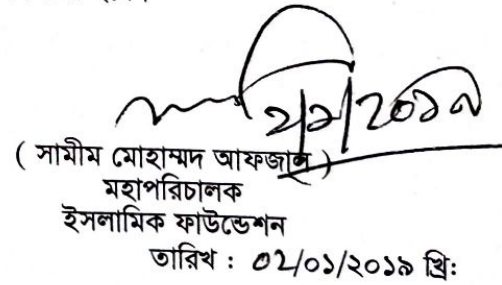 ২/১/২০১৯
( সামীম মোহাম্মদ আফজাল )
মহাপরিচালক
ইসলামিক ফাউন্ডেশন
তারিখ : ০২/০১/২০১৯ খ্রি: